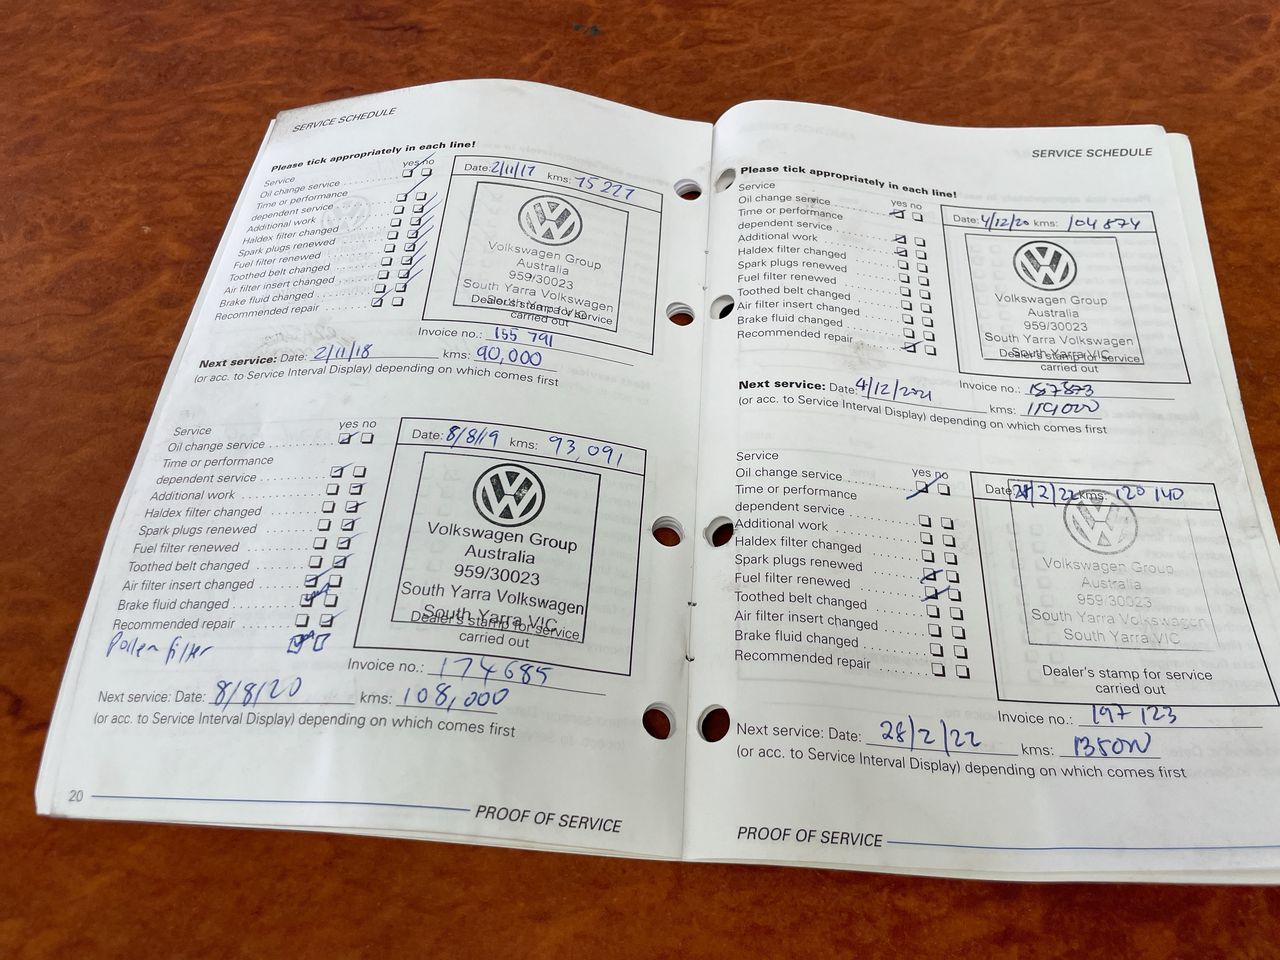 SERVICE SCHEDULE
Please tick appropriately in each line!
yes no
Service
Oil change service
Time or performance
dependent service
Additional work
Haldex filter changed
Spark plugs renewed
Fuel filter renewed
Toothed belt changed
Air filter insert changed
Brake fluid changed
Recommended repair
Date: 2/11/17 kms: 75 227
Volkswagen Group
Australia
959/30023
South Yarra Volkswagen
South Yarra VIC
Dealer's stamp for service
carried out
Invoice no.: 155 791
Next service: Date: 2/11/18 kms: 90,000
(or acc. to Service Interval Display) depending on which comes first
Service yes no
Oil change service
Time or performance
dependent service
Additional work
Haldex filter changed
Spark plugs renewed
Fuel filter renewed
Toothed belt changed
Air filter insert changed
Brake fluid changed
Recommended repair
Pollen filter
Date: 8/8/19 kms: 93,091
Volkswagen Group
Australia
959/30023
South Yarra Volkswagen
South Yarra VIC
Dealer's stamp for service
carried out
Invoice no.: 174685
Next service: Date: 8/8/20 kms: 108,000
(or acc. to Service Interval Display) depending on which comes first
20
PROOF OF SERVICE
SERVICE SCHEDULE
Please tick appropriately in each line!
Service
yes no
Oil change service
Time or performance
dependent service
Additional work
Haldex filter changed
Spark plugs renewed
Fuel filter renewed
Toothed belt changed
Air filter insert changed
Brake fluid changed
Recommended repair
Date: 4/12/20 kms: 104874
Volkswagen Group
Australia
959/30023
South Yarra Volkswagen
South Yarra VIC
Dealer's stamp for service
carried out
Invoice no.:
Next service: Date: 4/12/2021 kms: 119000
(or acc. to Service Interval Display) depending on which comes first
Service
yes no
Oil change service
Time or performance
dependent service
Additional work
Haldex filter changed
Spark plugs renewed
Fuel filter renewed
Toothed belt changed
Air filter insert changed
Brake fluid changed
Recommended repair
Date: 28/2/22 kms: 120 140
Volkswagen Group
Australia
959/30023
South Yarra Volkswagen
South Yarra VIC
Dealer's stamp for service
carried out
Invoice no.: 197 123
Next service: Date: 28/2/22 kms: 135000
(or acc. to Service Interval Display) depending on which comes first
PROOF OF SERVICE